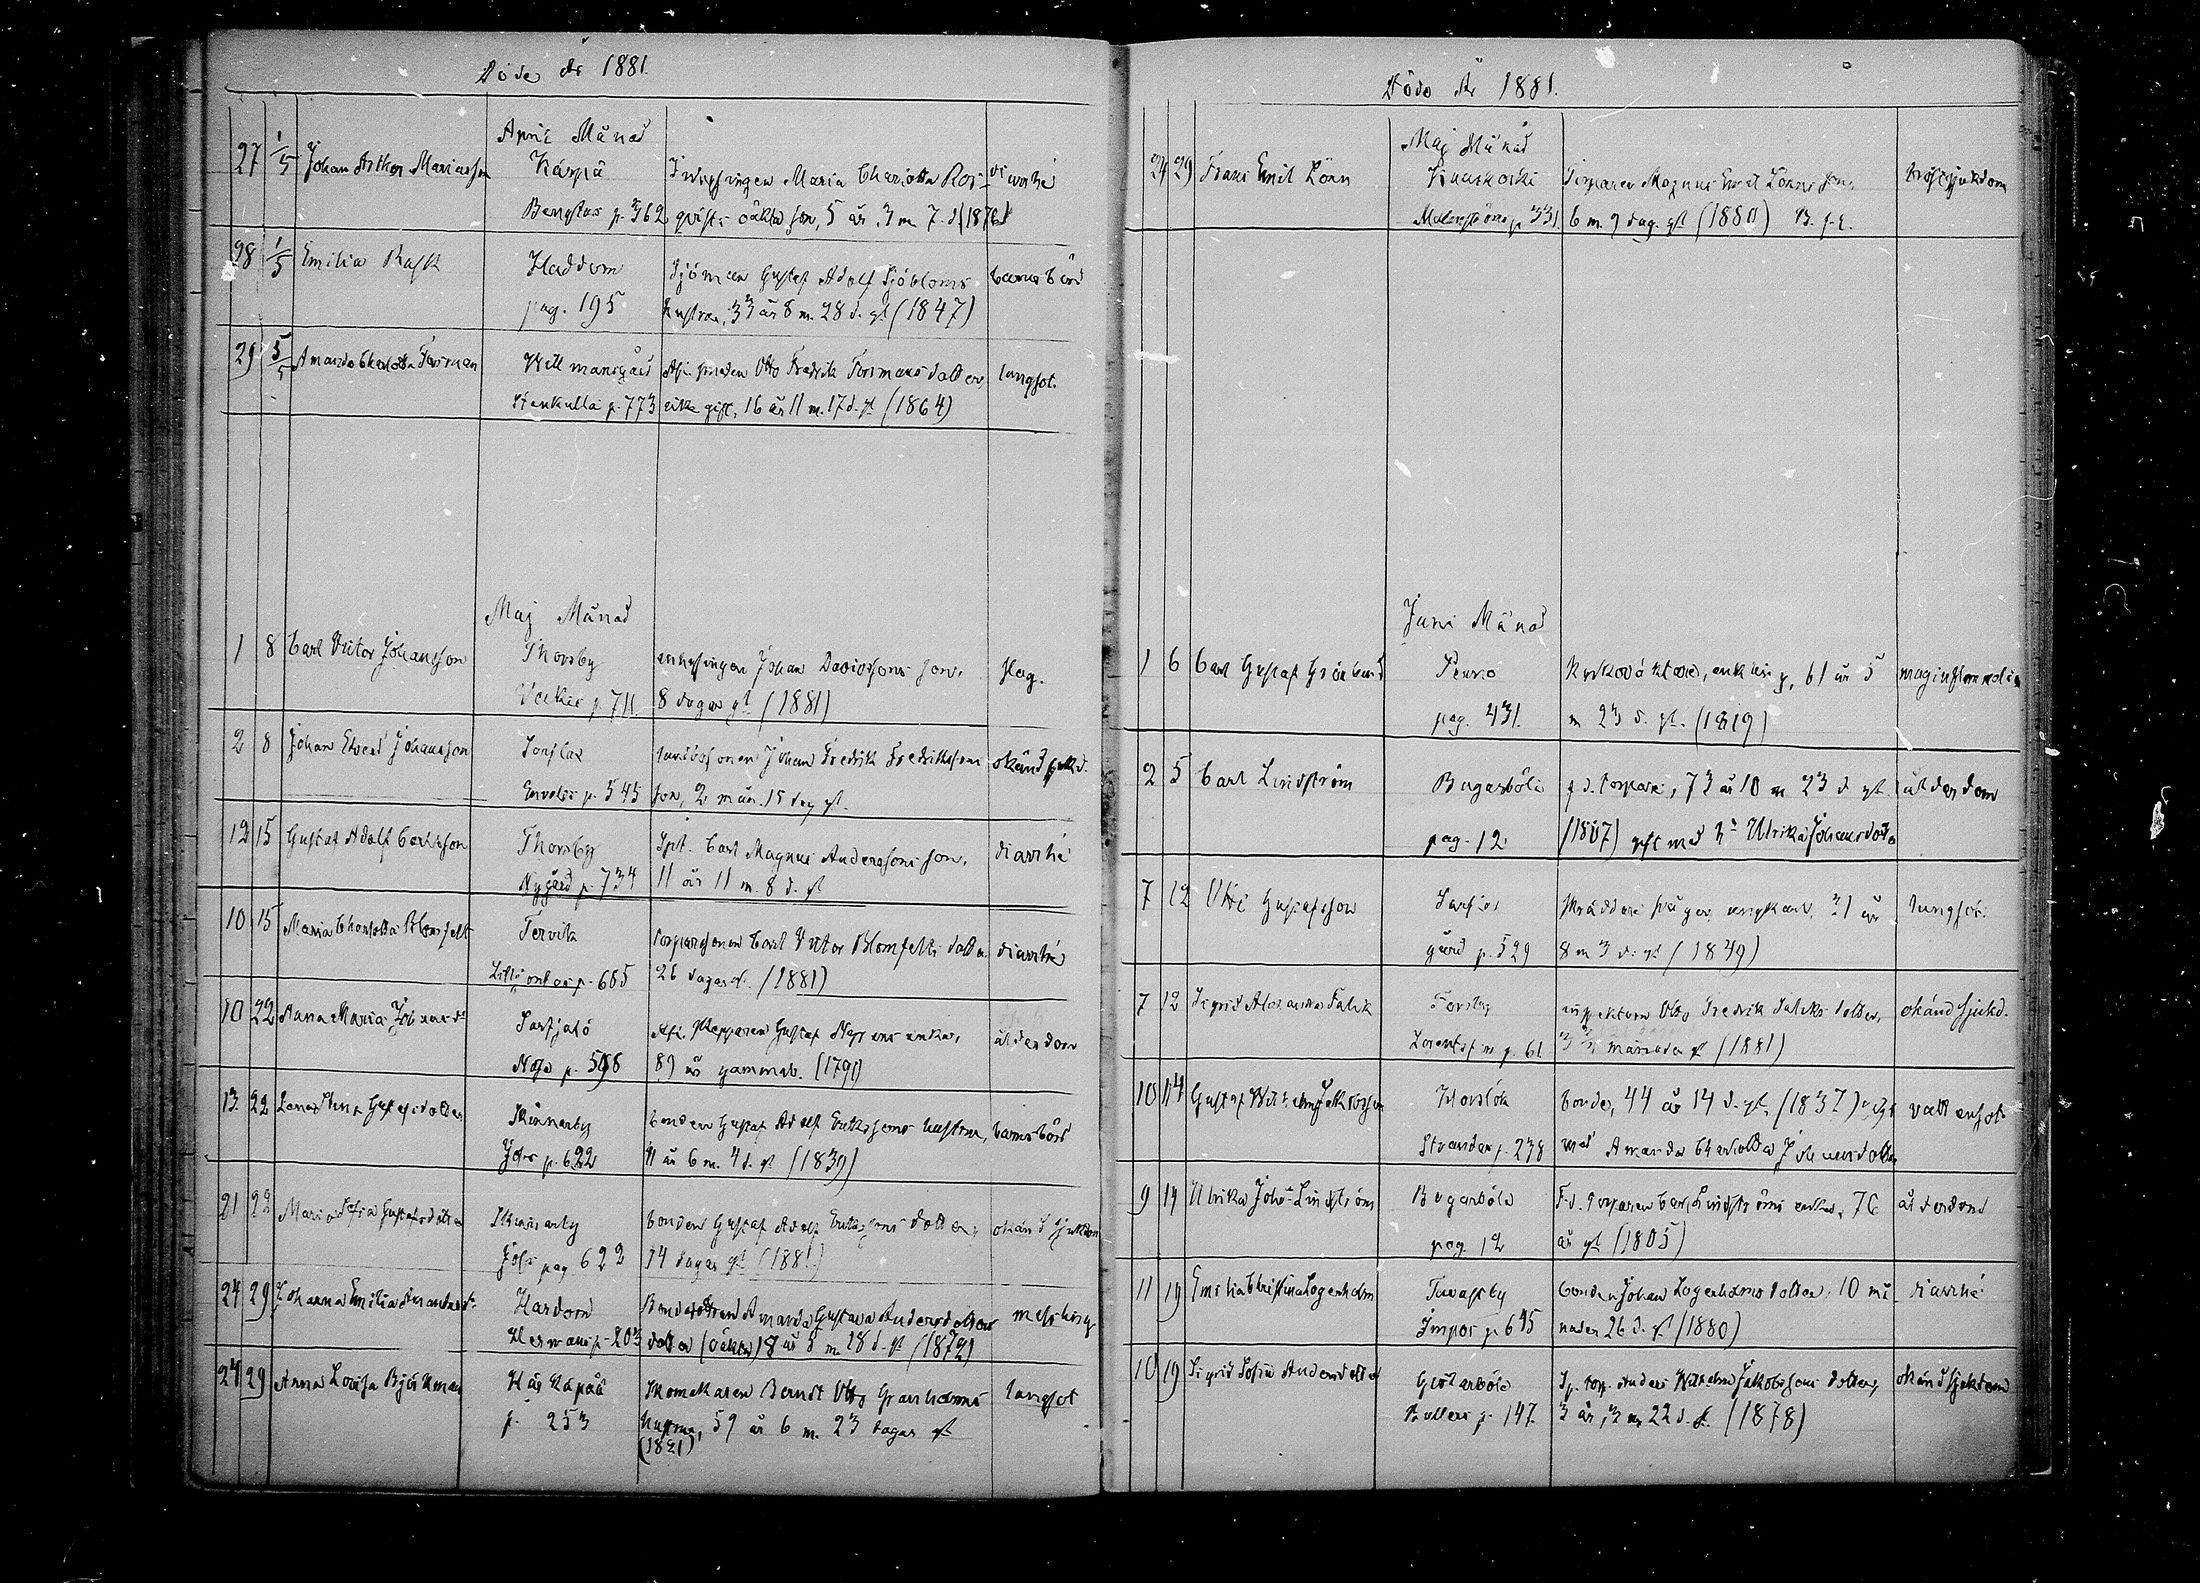 Döde År 1881.
April Månad
27 1/5 Johan Arthur Mariasson Kärpä Inhysingen Maria Charlotta Ros- diarrhé
Bengtas p. 362 qvists oäkta son, 5 år 3 m 7 d (1876)
28 1/5 Emilia Rask Haddom Sjöman Gustaf Adolf Sjöbloms barnsbörd
pag. 195 hustru, 33 år 8 m. 28 d. gl (1847)
29 5/5 Amanda Charlotta Forsman Afl. smeden Otto Fredrik Forsmans dotter lungsot.
p. 773 icke gift, 16 år 11 m. 17 d. gl (1864)
Maj Månad
1 8 Carl Victor Johansson Thorsby inhysingen Johan Davidssons son, slag.
p. 711 8 dagar gl (1881)
2 8 Johan Edvard Johansson Sarflax landbosonen Johan Fredrik Fredrikssons okänd sjukd.
p. 545 son, 2 mån. 15 dag gl.
12 15 Gustaf Adolf Carlsson Thorsby Spt. Carl Magnus Anderssons son, diarrhé
Nygård p. 734 11 år 11 m. 8 d. gl
10 15 Maria Charlotta Blomfelt Tervik torparsonen Carl Victor Blomfelts dotter diarrhé
p. 605 26 dagar gl. (1881)
10 22 Anna Maria Johansdr Sarfsalö Afl. skepparen Gustaf enka, ålderdom
p. 598 89 år gammal. (1791)
13 22 Lena Stina Gustafsdotter Skinnarby bonden Gustaf Adolf Erikssons hustru, barnsbörd
Jofs p. 622 41 år 6 m. 4 d. gl (1839)
21 22 Maria Sofia Gustafsdotter Skinnarby bonden Gustaf Adolf Erikssons dotter, okänd sjukdom
Jofs pag. 622 14 dagar gl (1881)
24 29 Johanna Emilia Amandasdr Hardom Bondedottren Amanda Gustava Andersdotters messling
Hermans p. 203 dotter (oäkta) 8 år 8 m. 18 d. gl (1872)
24 29 Anna Lovisa Björkman Kärpää Skomakaren Berndt Otto Granholms lungsot
p. 253 hustru, 59 år 6 m. 23 dagar gl
(1821)
Döde År 1881.
Maj Månad
24 29 Frans Emil Lönn Kuuskoski Torparen Magnus Ernst Lönns son, bröstsjukdom
p. 331 6 m. 9 dag. gl (1880)
Juni Månad
1 6 Carl Gustaf Grönlund Perno kyrkovaktare, enkling, 61 år 5 maginflammation
pag. 431. m 23 d. gl. (1819)
2 5 Carl Lindström Bugarböle f.d. torpare, 73 år 10 m 23 d gl ålderdom
pag. 12 (1807) gift med hr Ulrika Johansdotter
7 12 Otto Gustafsson Sarflax Skräddare, ungkarl, 21 år lungsot.
gård p. 529 8 m 3 d. gl (1839)
7 12 Sigrid Alexandra Falck Forsby inspektoren Otto Fredrik Falcks dotter, okänd sjukd.
p. 61 månader gl (1881)
10 14 Gustaf Wilhelm Jakobsson bonde, 44 år 14 d. gl. (1837) gift vattensot
Strandas p. 238 med Amanda Charlotta Johansdotter
9 19 Ulrika Johdr Lindström Bugarböle F.d. torparen Carl Lindströms enka, 76 ålderdom
pag. 12 år gl (1805)
11 19 Emilia Christina Lagerholm Tavastby bonden Johan Lagerholms dotter, 10 må- diarrhé
Impos p. 695 nader 26 d. gl (1880)
10 19 Sigrid Sofia Andersdotter Gislarböle Sp. torp. Anders Wilhelm Jakobssons dotter, okänd sjukdom
Bullers p. 147 3 år, 3 m 22 d. gl (1878)